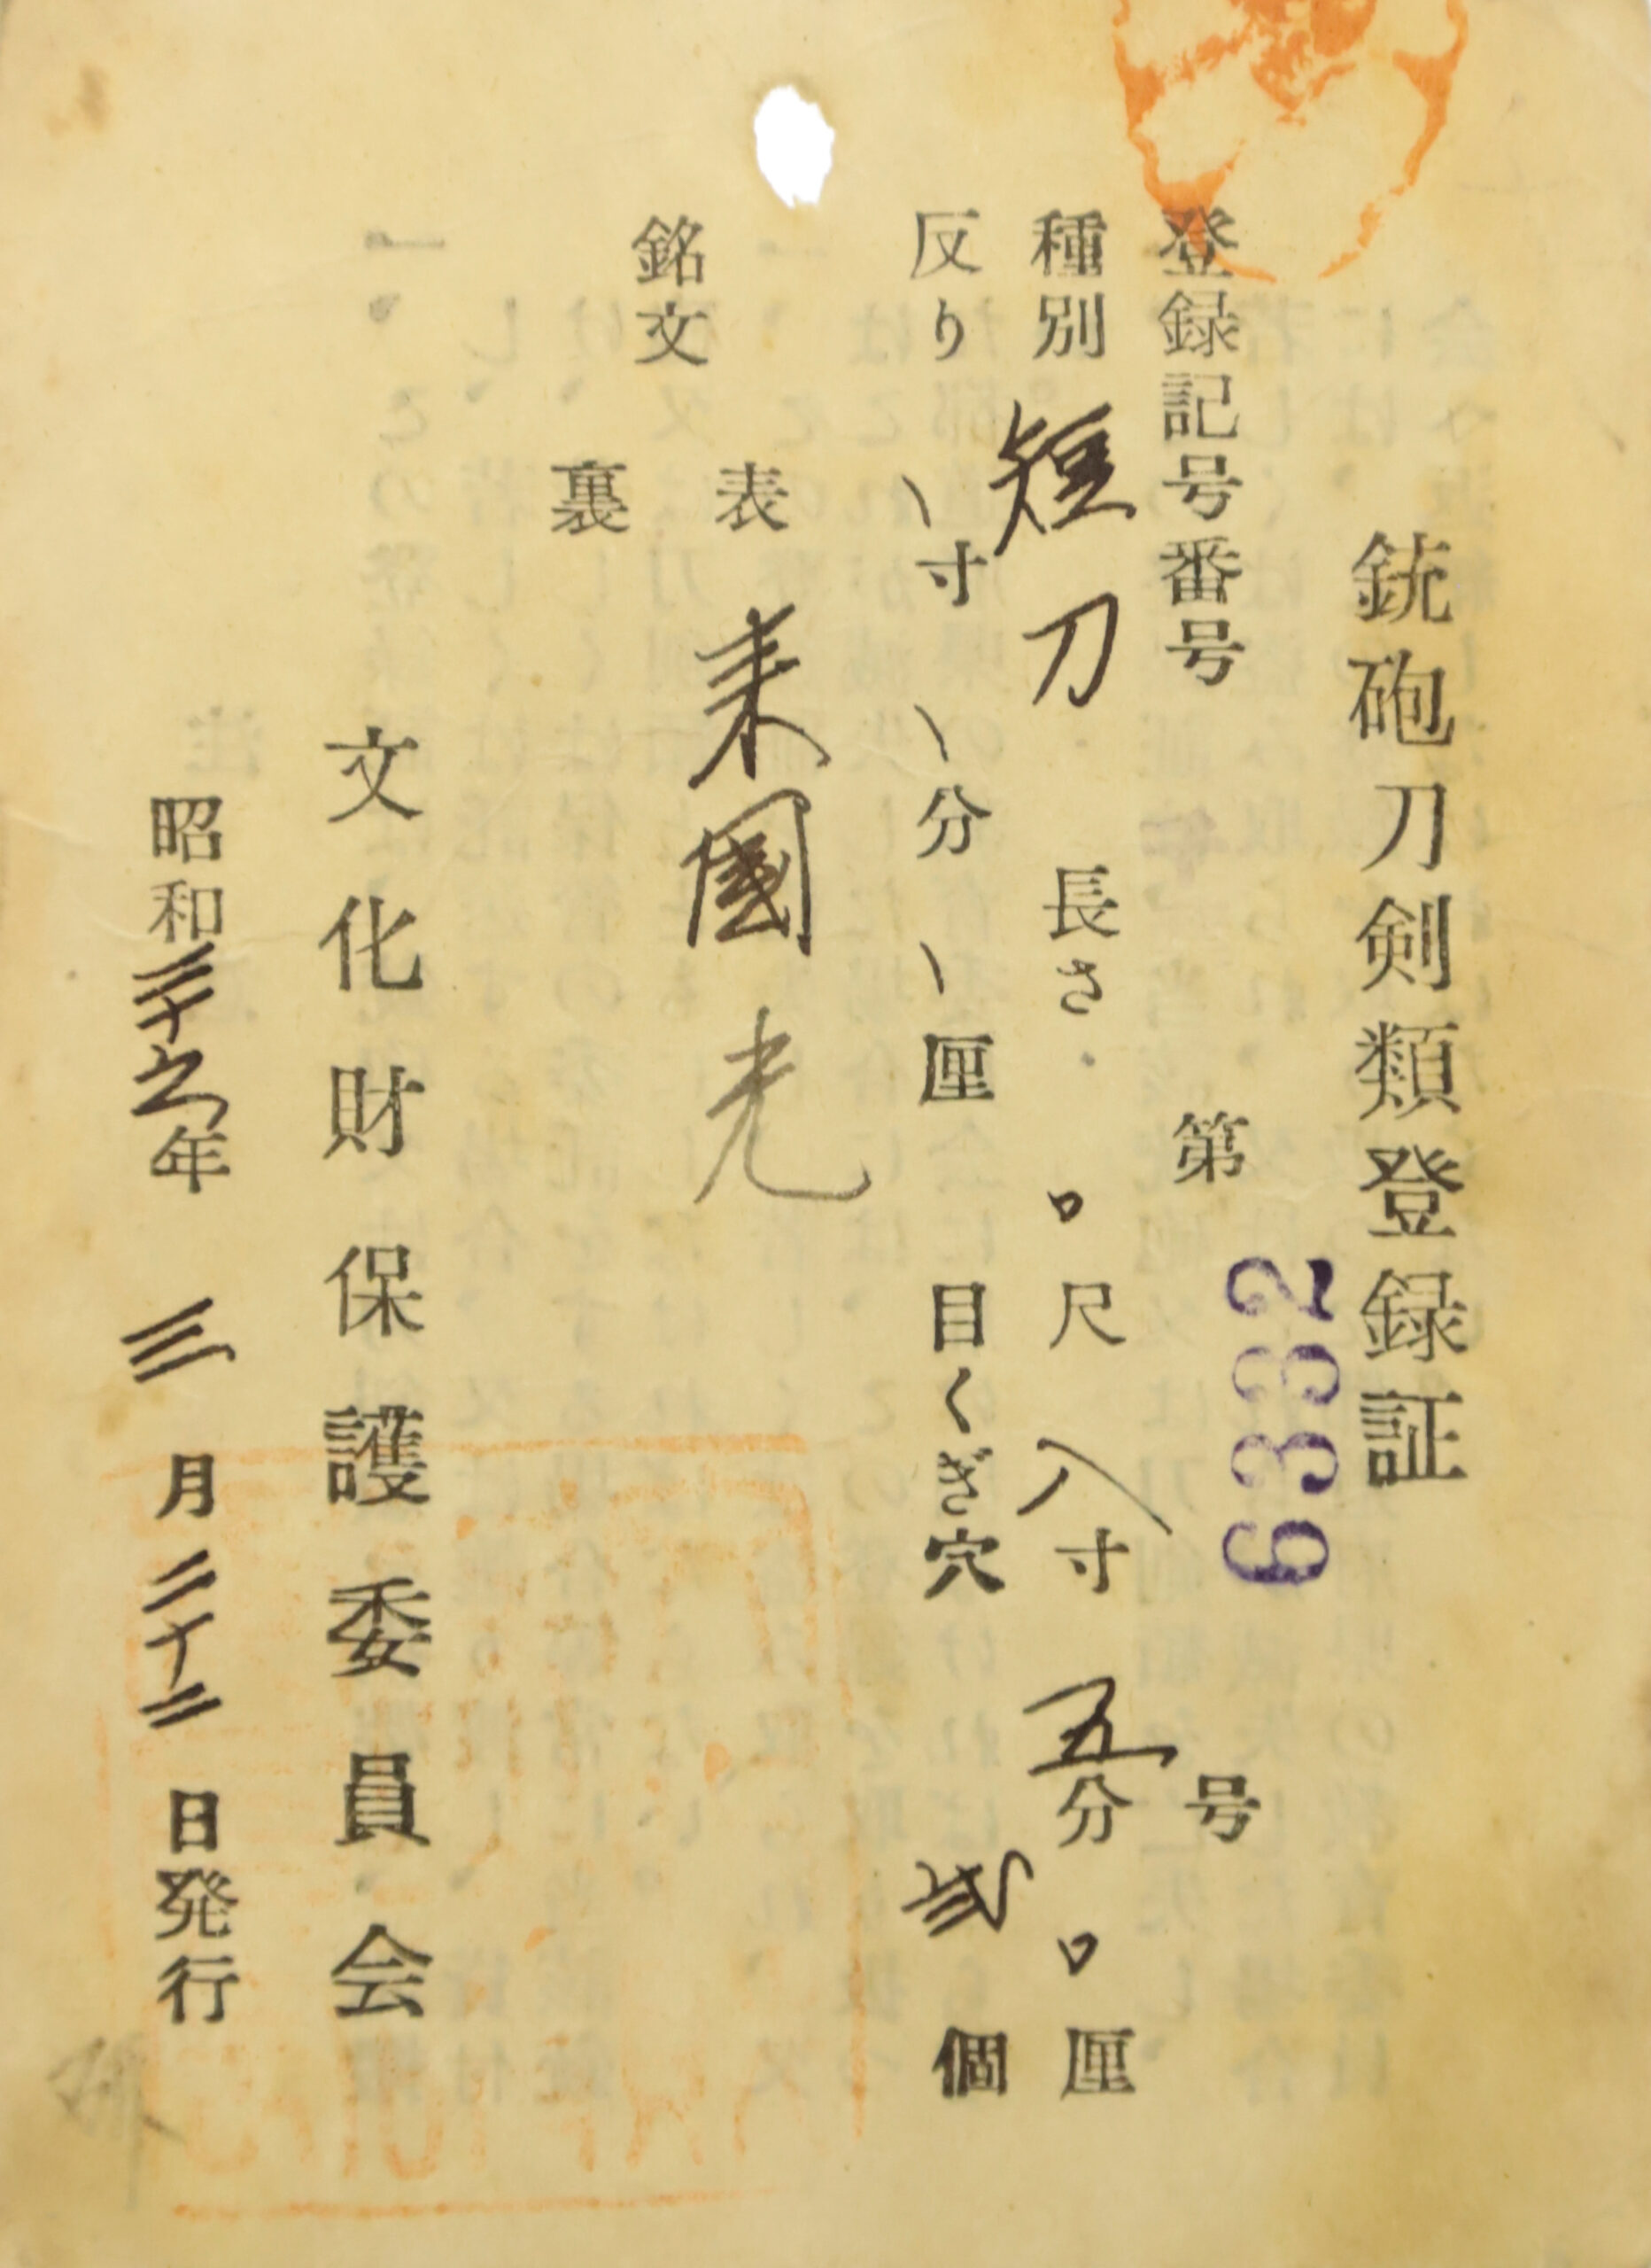 銃砲刀剣類登録証
登録記号番号 第 6332 号
種別 短刀 長さ 〇尺 八寸 五分 〇厘
反り 〵寸 〵分 〵厘 目くぎ穴 弐 個
銘文 表 来國光
裏
文化財保護委員会
昭和 年 三月 二十二日発行